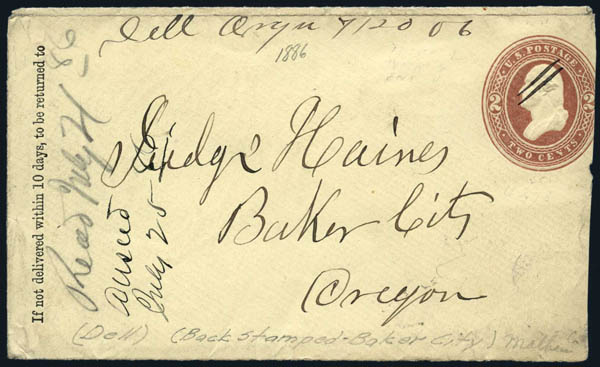 Dell Orgn 7/20 86
1886
U.S. POSTAGE
2 2
TWO CENTS
Judge Haines
Baker City
Oregon
If not delivered within 10 days, to be returned to
Recd July 21 - 86
July 25
(Dell) (Back stamped - Baker City)